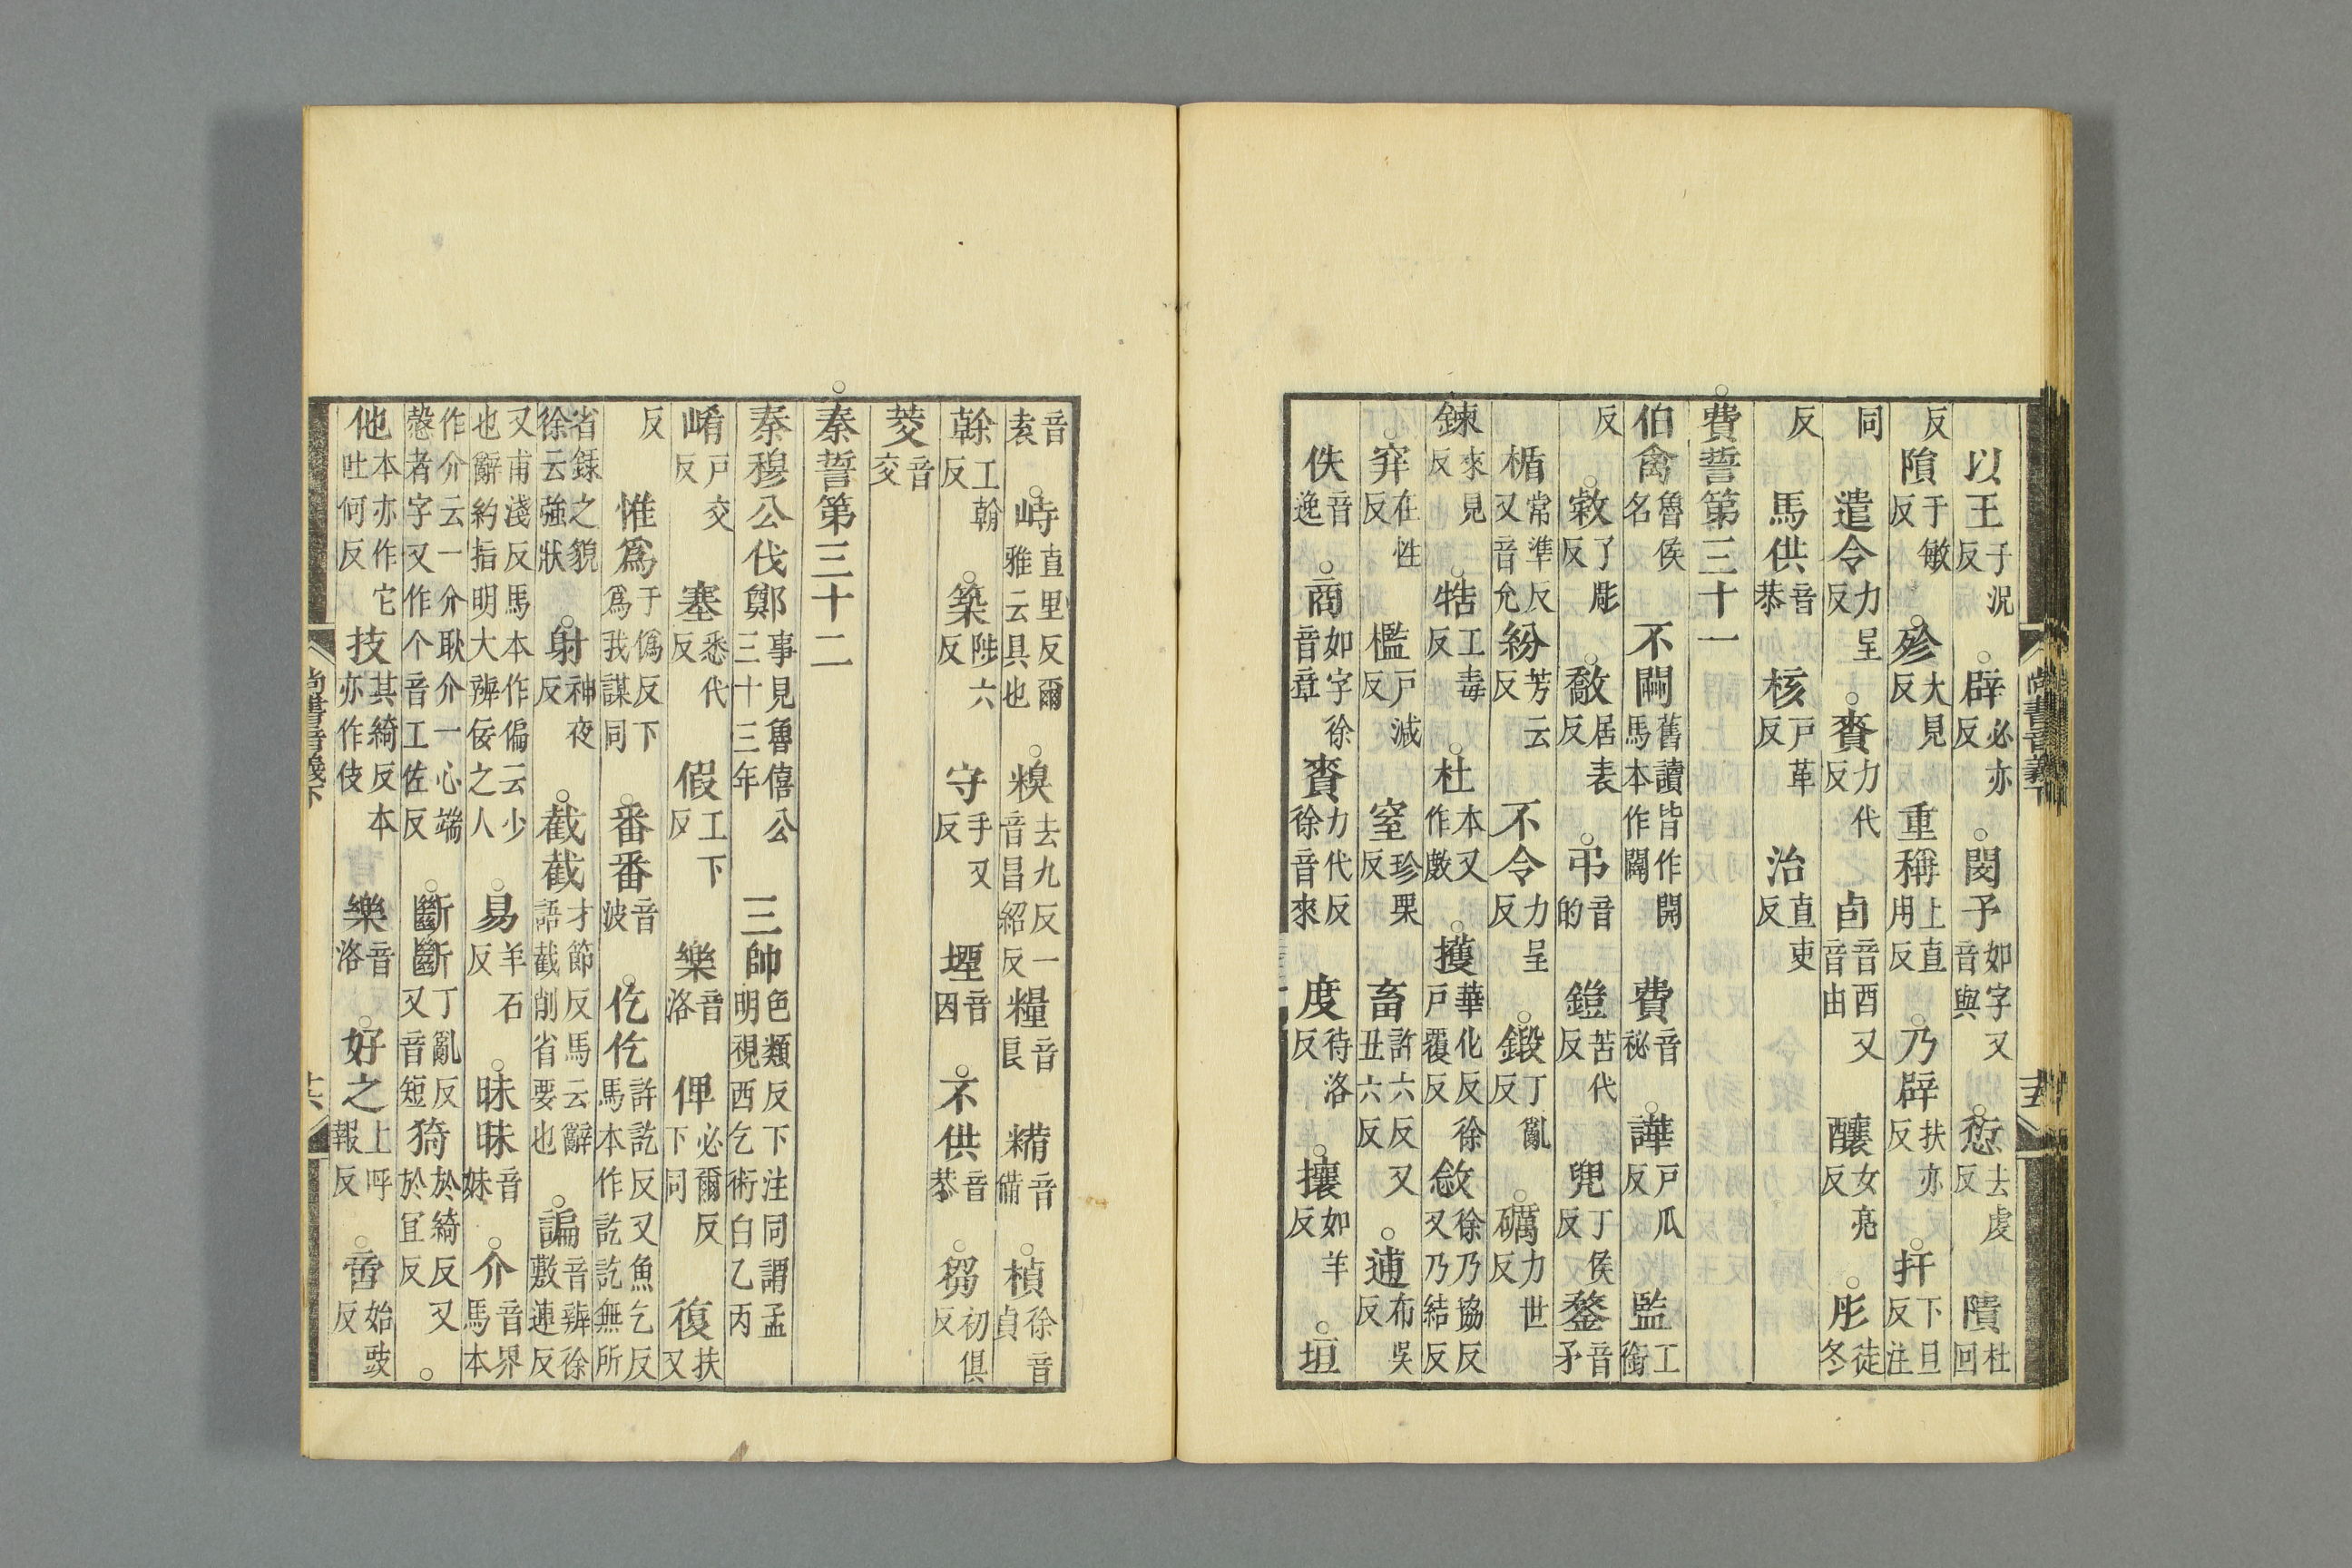 以王于況反 ○辟必亦反 ○閔予如字又音與 ○愆去虔反 隤杜回
反 隕于敏反 ○殄大見反 重稱上直用反 ○乃辟扶亦反 ○扞下旦反注
同 遣令力呈反 ○賚力代反 卣音酉又音由 釀女亮反 ○彤徒冬
反 馬供音恭 核戶革反 治直吏反
○費誓第三十一
伯禽魯侯名 不開舊讀皆作開馬本作闢 費音祕 ○譁戶瓜反 監工銜
反 ○敹了彫反 ○敿居表反 ○弔音的 鎧苦代反 兜丁侯反 鍪音矛
楯常準反又音允 紛芳云反 不令力呈反 ○鍛丁亂反 ○礪力世反
鍊來見反 ○牿工毒反 ○杜本又作𢾖 ○擭華化反徐戶覆反 敜徐乃協反又乃結反
○穽在性反 檻戶減反 窒珍栗反 畜許六反又丑六反 ○逋布吳反
佚音逸 ○商如字徐音章 賚力代反徐音來 度待洛反 ○攘如羊反 ○垣
音袁 ○峙直里反爾雅云具也 ○糗去九反一音昌紹反 糧音良 糒音備 ○楨徐音貞
榦工翰反 ○築陟六反 守手又反 堙音因 ○不供音恭 ○芻初俱反
茭音交
○秦誓第三十二
秦穆公伐鄭事見魯僖公三十三年 三帥色類反下注同謂孟明視西乞術白乙丙
崤戶交反 塞悉代反 假工下反 樂音洛 俾必爾反下同 復扶又
反 惟爲于僞反下爲我謀同 ○番番音波 ○仡仡許訖反又魚乞反馬本作訖訖無所
省錄之貌徐云強狀 ○射神夜反 ○截截才節反馬云辭語截削省要也 ○諞音辨徐敷連反
又甫淺反馬本作偏云少也辭約指明大辨佞之人 ○易羊石反 ○昧昧音妹 ○介音界馬本
作介云一介耿介一心端愨者字又作个音工佐反 ○斷斷丁亂反又音短 猗於綺反又於宜反 ○
他本亦作它吐何反 技其綺反本亦作伎 樂音洛 ○好之上呼報反 ○啻始豉反
尚書音義下
十六